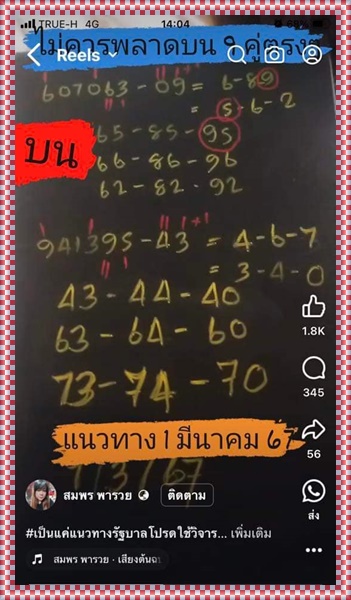 TRUE-H 4G 14:04
ไม่ควรพลาดบน 9 คู่ตรงๆ
Reels
607063-09 = 6-89
= 5-6-2
บน
65-85-95
66-86-96
62-82-92
941395-43 = 4-6-7
= 3-4-0
43-44-40
63-64-60
73-74-70
1.8K
345
แนวทาง 1 มีนาคม 67
56
1/3/67
สมพร พารวย
ติดตาม
ส่ง
#เป็นแค่แนวทางรัฐบาลโปรดใช้วิจาร... เพิ่มเติม
สมพร พารวย • เสียงต้นฉบ